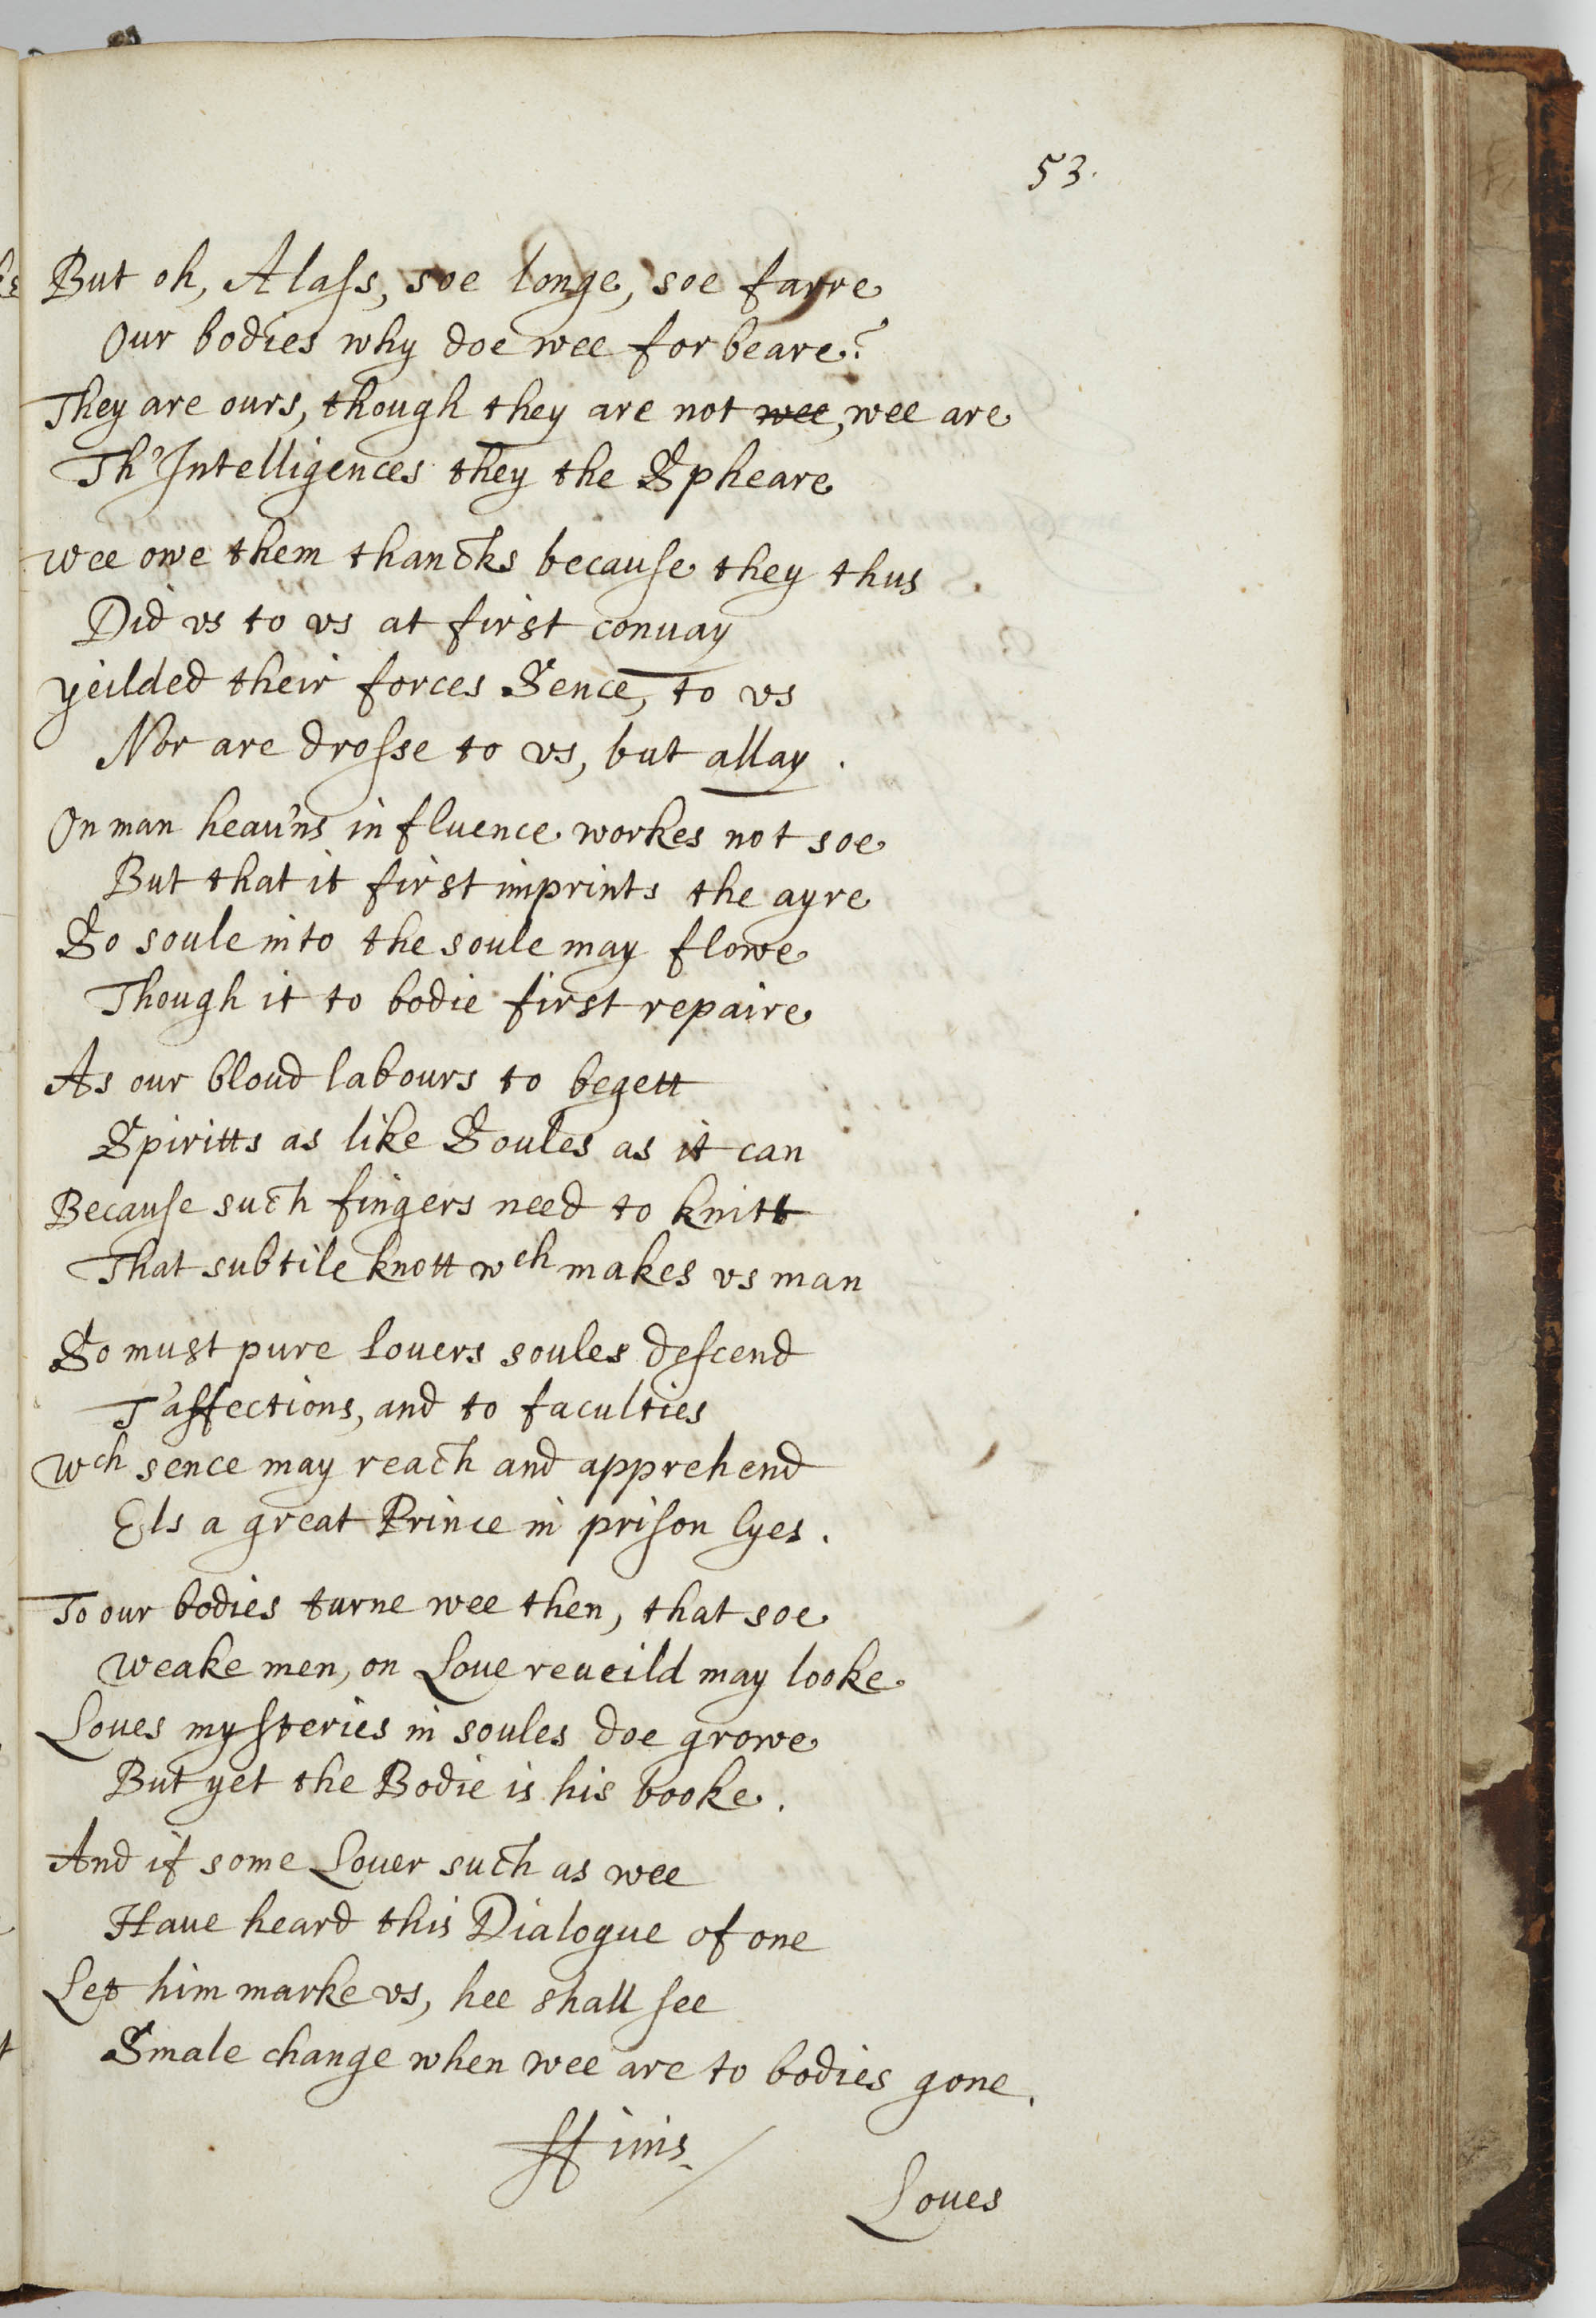 53.
But oh, Alaſs, soe longe, soe farre
Our bodies why doe wee forbeare?
They are ours, though they are not wee, wee are
Th'Intelligences they the Spheare
wee owe them thancks becauſe they thus
Did vs to vs at first conuay
yeilded their forces Sence, to vs
Nor are droſse to vs, but allay.
On man heau'ns influence workes not soe
But that it first imprints the ayre
So soule into the soule may flowe
Though it to bodie first repaire
As our bloud labours to begett
Spiritts as like Soules as it can
Becauſe such fingers need to knitt
That subtile knott wch makes vs man
So must pure louers soules deſcend
T'affections, and to faculties
Wch sence may reach and apprehend
Els a great Prince in priſon lyes.
To our bodies turne wee then, that soe
weake men, on Loue reueild may looke
Loues myſteries in soules doe growe
But yet the Bodie is his booke.
And if some Louer such as wee
Haue heard this Dialogue of one
Let him marke vs, hee shall ſee
Smale change when wee are to bodies gone.
ffinis.
Loues